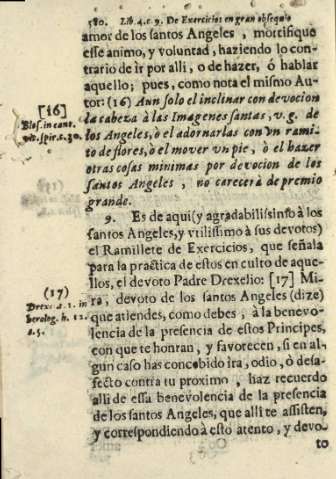 580. Lib. 4. c. 9. De Exercicios en gran obsequio
amor de los santos Angeles, mortifique
esse animo, y voluntad, haziendo lo con-
trario de ir por alli, o de hazer, ó hablar
aquello; pues, como nota el mismo Au-
tor: (16) Aun solo el inclinar con devocion
la cabeza à las Imagenes santas, v. g. de
los Angeles, ò el adornarlas con vn rami-
to de flores, ò el mover vn pie, ò el hazer
otras cosas minimas por devocion de los
santos Angeles, no carecerà de premio
grande.
[16]
Blos. in cant.
vit. spir. c. 30.
9. Es de aqui (y agradabilissimo à los
santos Angeles, y vtilissimo à sus devotos)
el Ramillete de Exercicios, que señala
para la practica de estos en culto de aque-
llos, el devoto Padre Drexelio: [17] Mi-
ra, devoto de los santos Angeles (dize)
que atiendes, como debes, à la benevo-
lencia de la presencia de estos Principes,
con que te honran, y favorecen, si en al-
gun caso has concebido ira, odio, ò desa-
fecto contra tu proximo, haz recuerdo
alli de essa benevolencia de la presencia
de los santos Angeles, que alli te assisten,
y correspondiendo à esto atento, y devo-
to
(17)
Drex. in
horolog. h. 12.